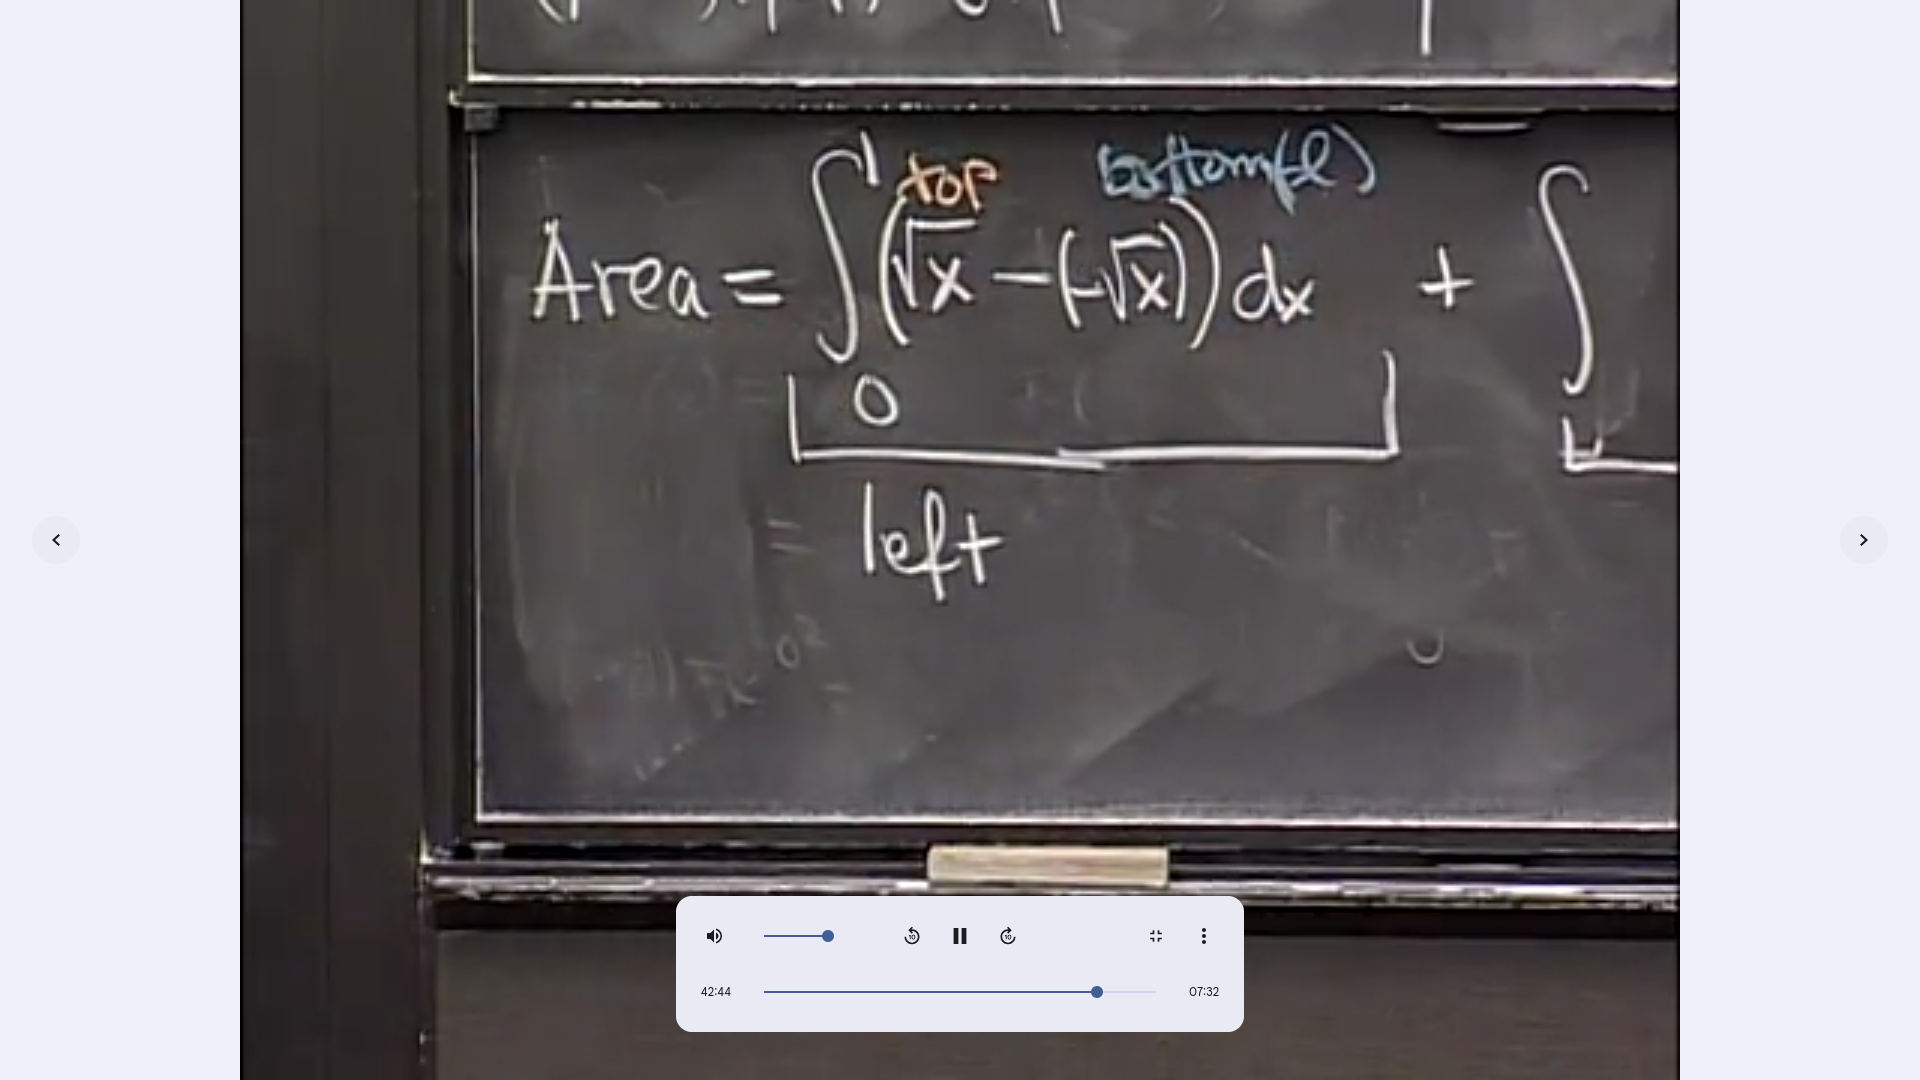 top bottom(l)
Area = ∫₀¹ (√x − (−√x)) dx + ∫
left
42:44 07:32